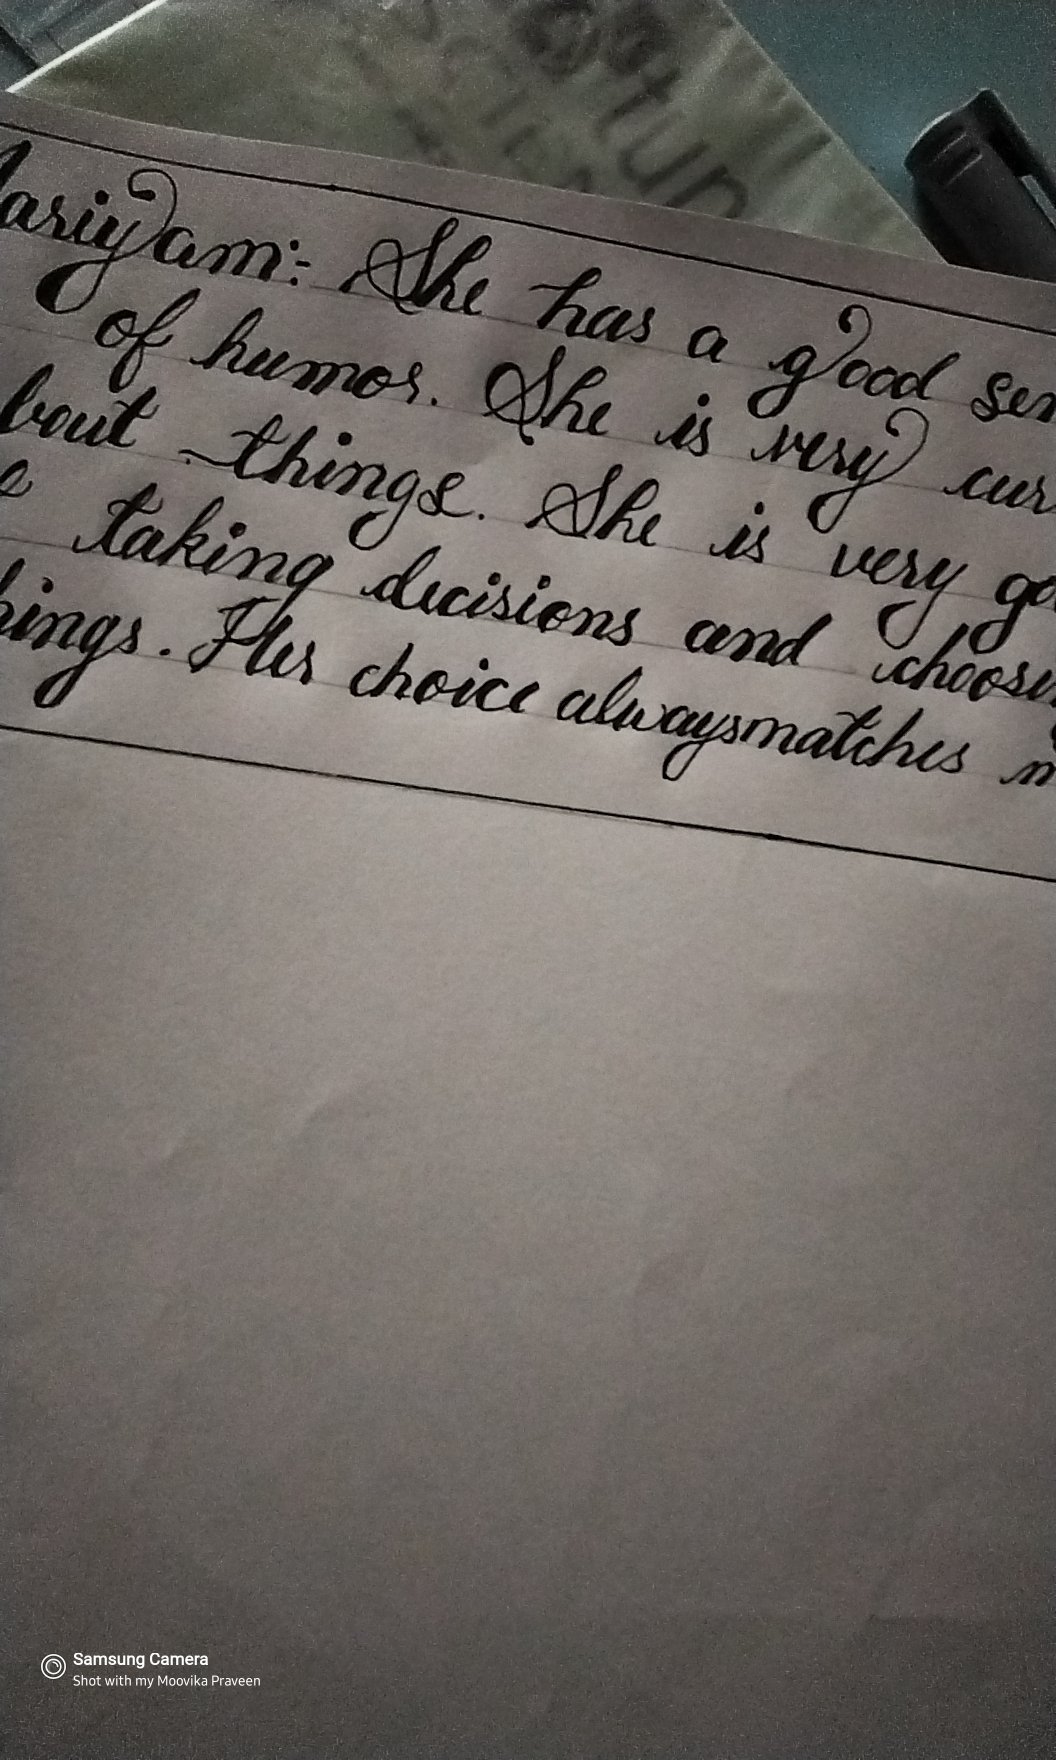 ariyam:- She has a good sen
of humor. She is very cur
bout things. She is very go
e taking decisions and choosin
hings. Her choice alwaysmatches m
Samsung Camera
Shot with my Moovika Praveen